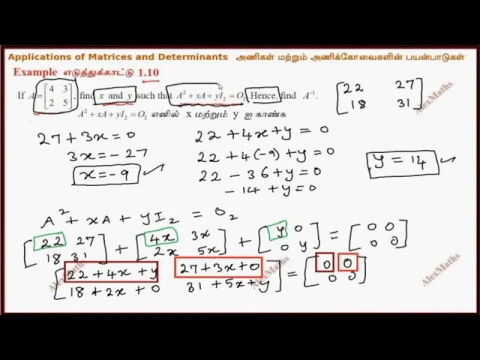 Applications of Matrices and Determinants அணிகள் மற்றும் அணிக்கோவைகளின் பயன்பாடுகள்
Example எடுத்துக்காட்டு 1.10
If A = [4 3; 2 5], find x and y such that A² + xA + yI₂ = O₂. Hence, find A⁻¹.
A² + xA + yI₂ = O₂ எனில் x மற்றும் y ஐ காண்க
[22 27; 18 31]
27 + 3x = 0
3x = -27
x = -9 ✓
22 + 4x + y = 0
22 + 4(-9) + y = 0
22 - 36 + y = 0
-14 + y = 0
y = 14 ✓
A² + xA + yI₂ = O₂
[22 27; 18 31] + [4x 3x; 2x 5x] + [y 0; 0 y] = [0 0; 0 0]
[22 + 4x + y 27 + 3x + 0; 18 + 2x + 0 31 + 5x + y] = [0 0; 0 0]
AlexMaths
AlexMaths
AlexMaths
AlexMaths